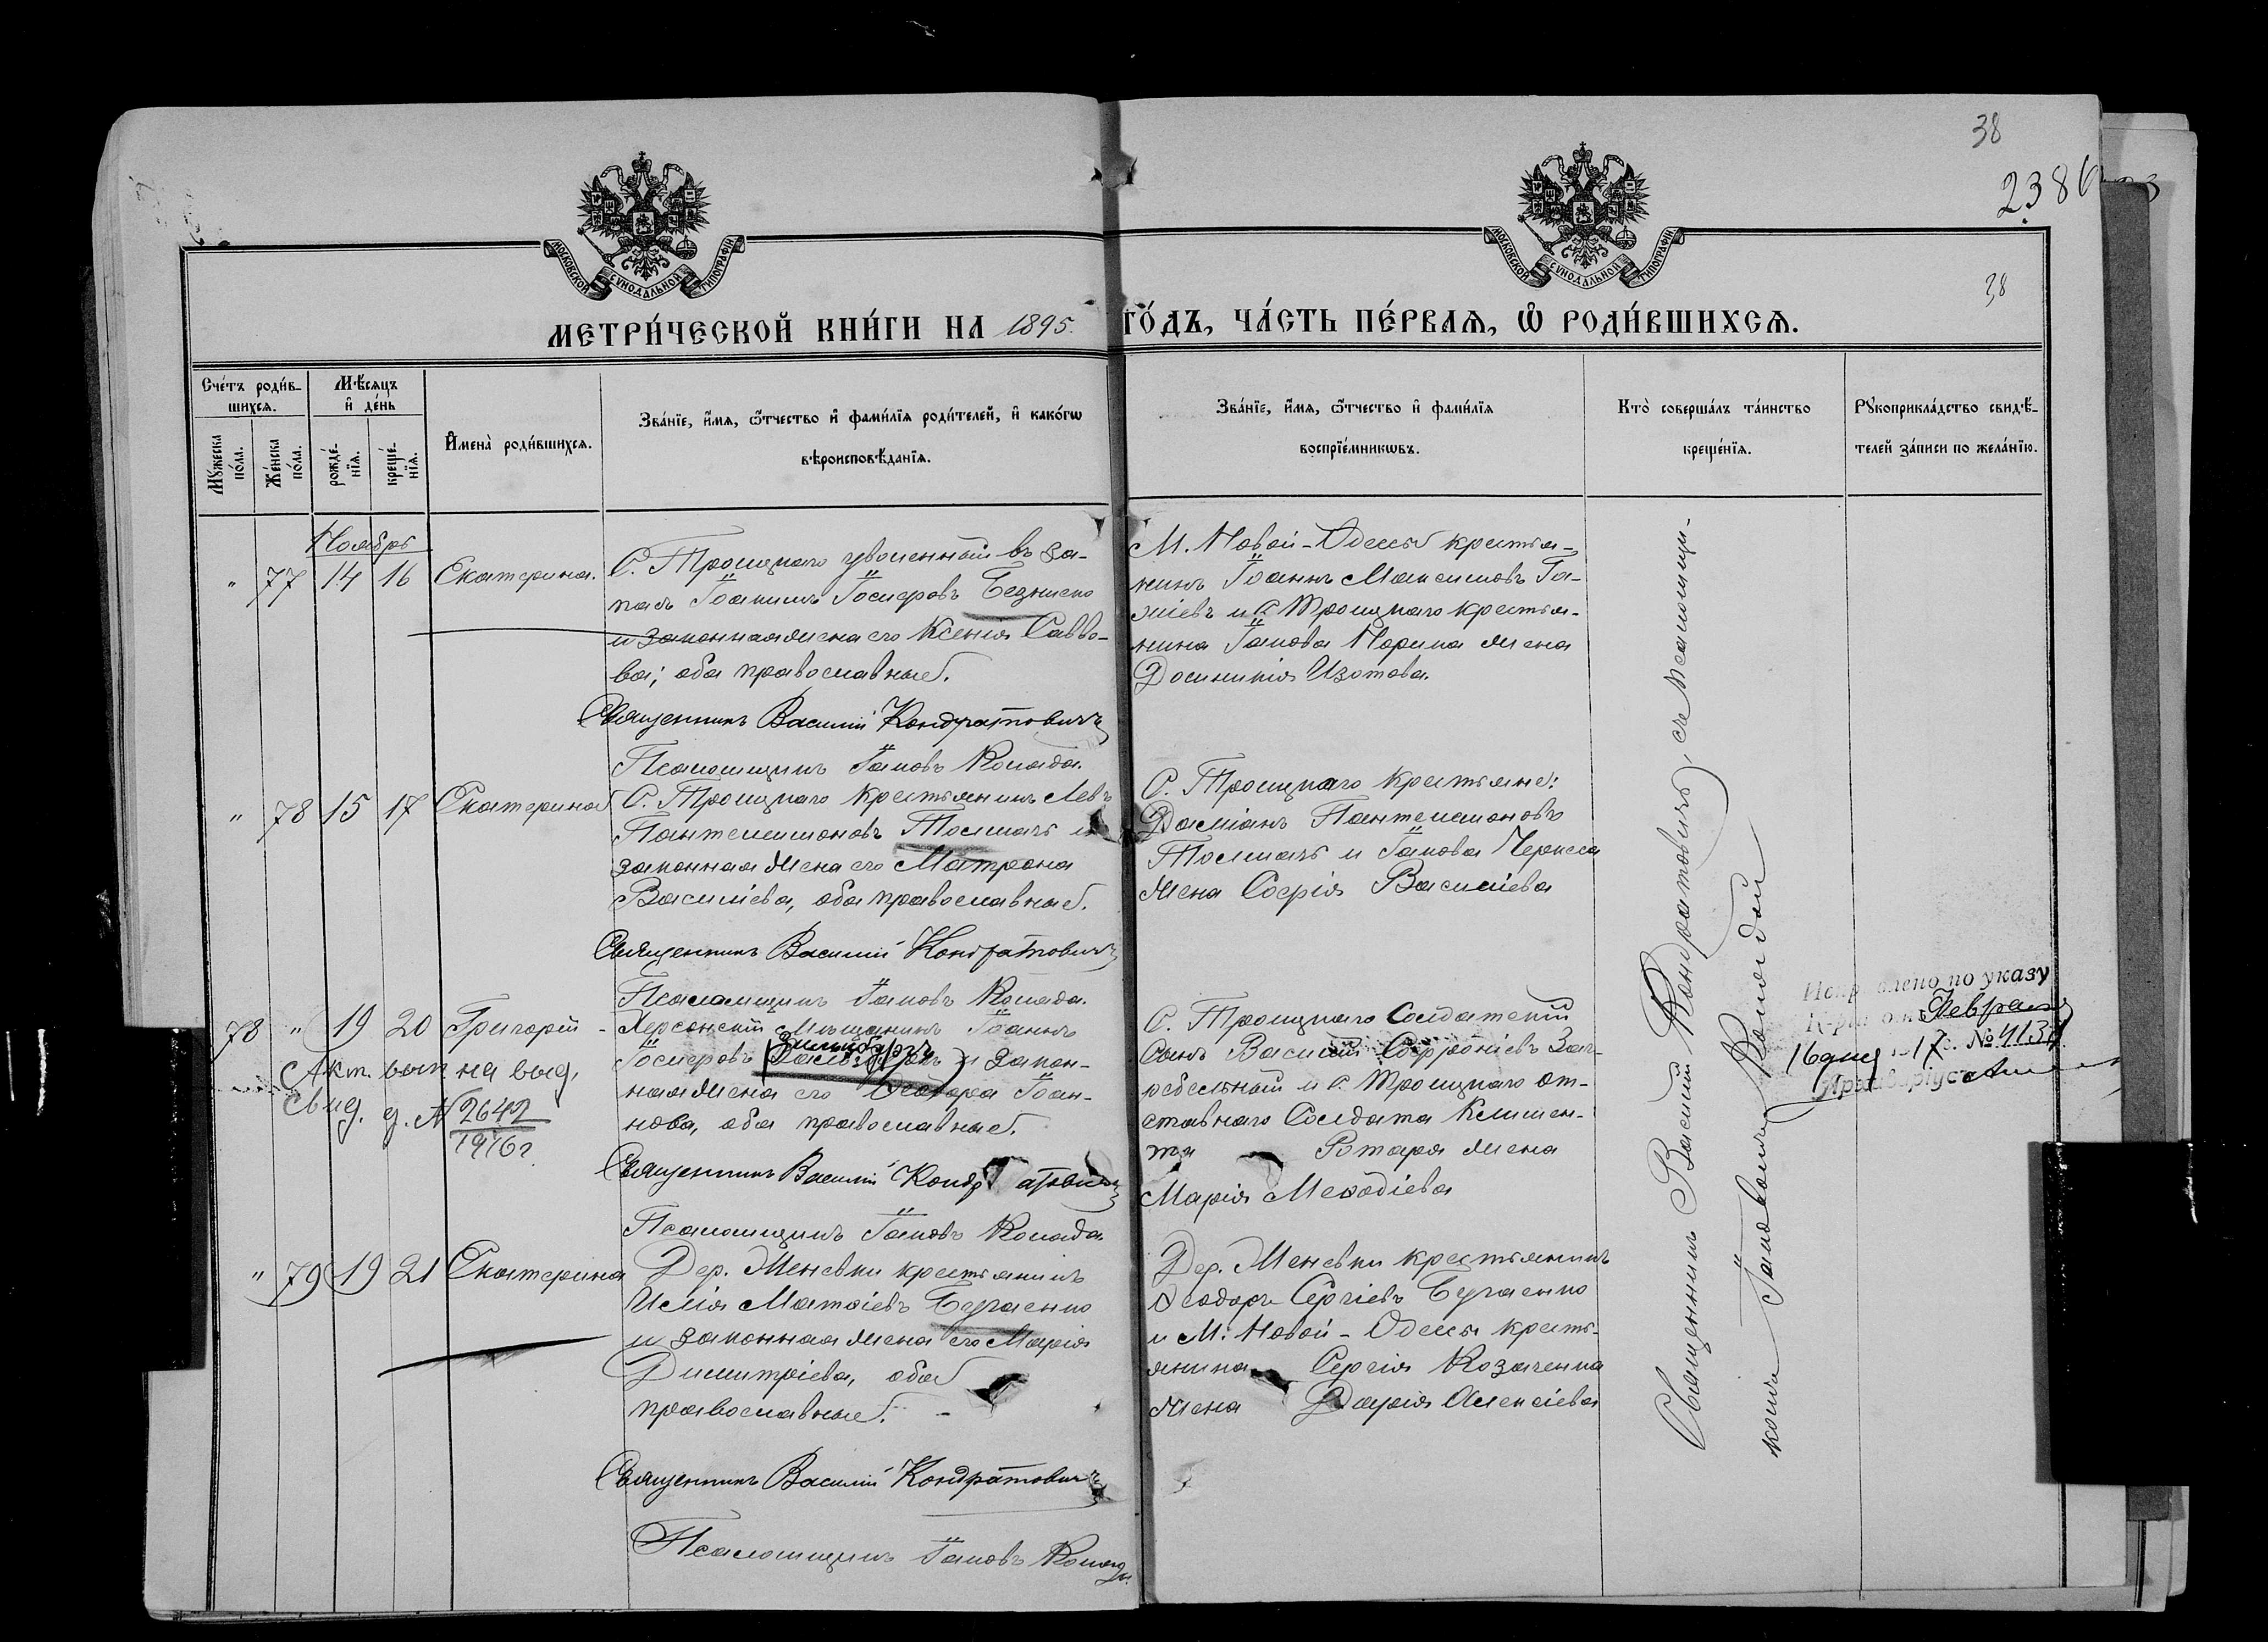 38
2386
38
МОСКОВСКОЙ СѴНОДАЛЬНОЙ ТИПОГРАФІИ
МОСКОВСКОЙ СѴНОДАЛЬНОЙ ТИПОГРАФІИ
МЕТРИ́ЧЕСКОЙ КНИ́ГИ НА 1895 ГО́ДЪ, ЧА́СТЬ ПЕ́РВАЯ, Ѡ҆ РОДИ́ВШИХСЯ.
Сче́тъ роди́в-
шихся.
Мꙋ́жеска по́ла.
Же́нска по́ла.
Мѣ́сяцъ
и҆ де́нь
рожде́-нїя.
креще́-нїя.
И҆мена̀ роди́вшихся.
Зва́нїе, и҆́мя, ѻ҆́тчество и҆ фами́лїя роди́телей, и҆ како́гѡ
вѣроисповѣ́данїя.
Зва́нїе, и҆́мя, ѻ҆́тчество и҆ фами́лїя
воспрїе́мникѡвъ.
Кто̀ соверша́лъ та́инство
креще́нїя.
Рꙋкоприкла́дство свидѣ́-
телей за́писи по жела́нїю.
Ноябрь
" 77 14 16 Екатерина.
С. Троицкаго уволенный въ за-
пасъ Іоакимъ Іосифовъ
и законная жена его Ксенія Савво-
ва; оба православные.
Священникъ Василій Кондратовичъ
Псаломщикъ Іаковъ Колада.
М. Новой-Одессы крестья-
нинъ Іоаннъ Максимовъ Га-
жіевъ и с. Троицкаго крестья-
нина Іакова Марина жена
Досикикія Изотова.
" 78 15 17 Екатерина
С. Троицкаго крестьянинъ Левъ
Пантелимоновъ Толмачъ и
законная жена его Матрона
Василіева, оба православные.
Священникъ Василій Кондратовичъ
Псаломщикъ Іаковъ Колада.
С. Троицкаго крестьяне:
Даміанъ Пантелимоновъ
Толмачъ и Іакова Черкеса
жена Софія Василіева
78 " 19 20 Григорій -
Акт. вып. на выд.
свид. д. № 2642
1916 г.
Херсонскій мѣщанинъ Іоаннъ
Іосифовъ и закон-
ная жена его Ѳеодора Іоан-
нова, оба православные.
Священникъ Василій Кондратовичъ
Псаломщикъ Іаковъ Колада
С. Троицкаго Солдатскій
Сынъ Василій Софроніевъ
и с. Троицкаго от-
ставнаго Солдата Климен-
та Ротаря жена
Марія Меѳодіева
Исправлено по указу
Февраля
16 дня 1917 г. № 4134
Архиваріус
" 79 19 21 Екатерина
Дер. Женевки крестьянинъ
Илія Матѳіевъ Бугаенко
и законная жена его Марія
Димитріева, оба
православные. -
Священникъ Василій Кондратовичъ
Псаломщикъ Іаковъ Колада.
Дер. Женевки крестьянинъ
Ѳеодоръ Сергіевъ Бугаенко
и М. Новой-Одессы кресть-
янина Сергія Козаченка
жена Дарія Алексіева
Священникъ Василій Кондратовичъ, съ псаломщи-
комъ Іаковомъ Коладой